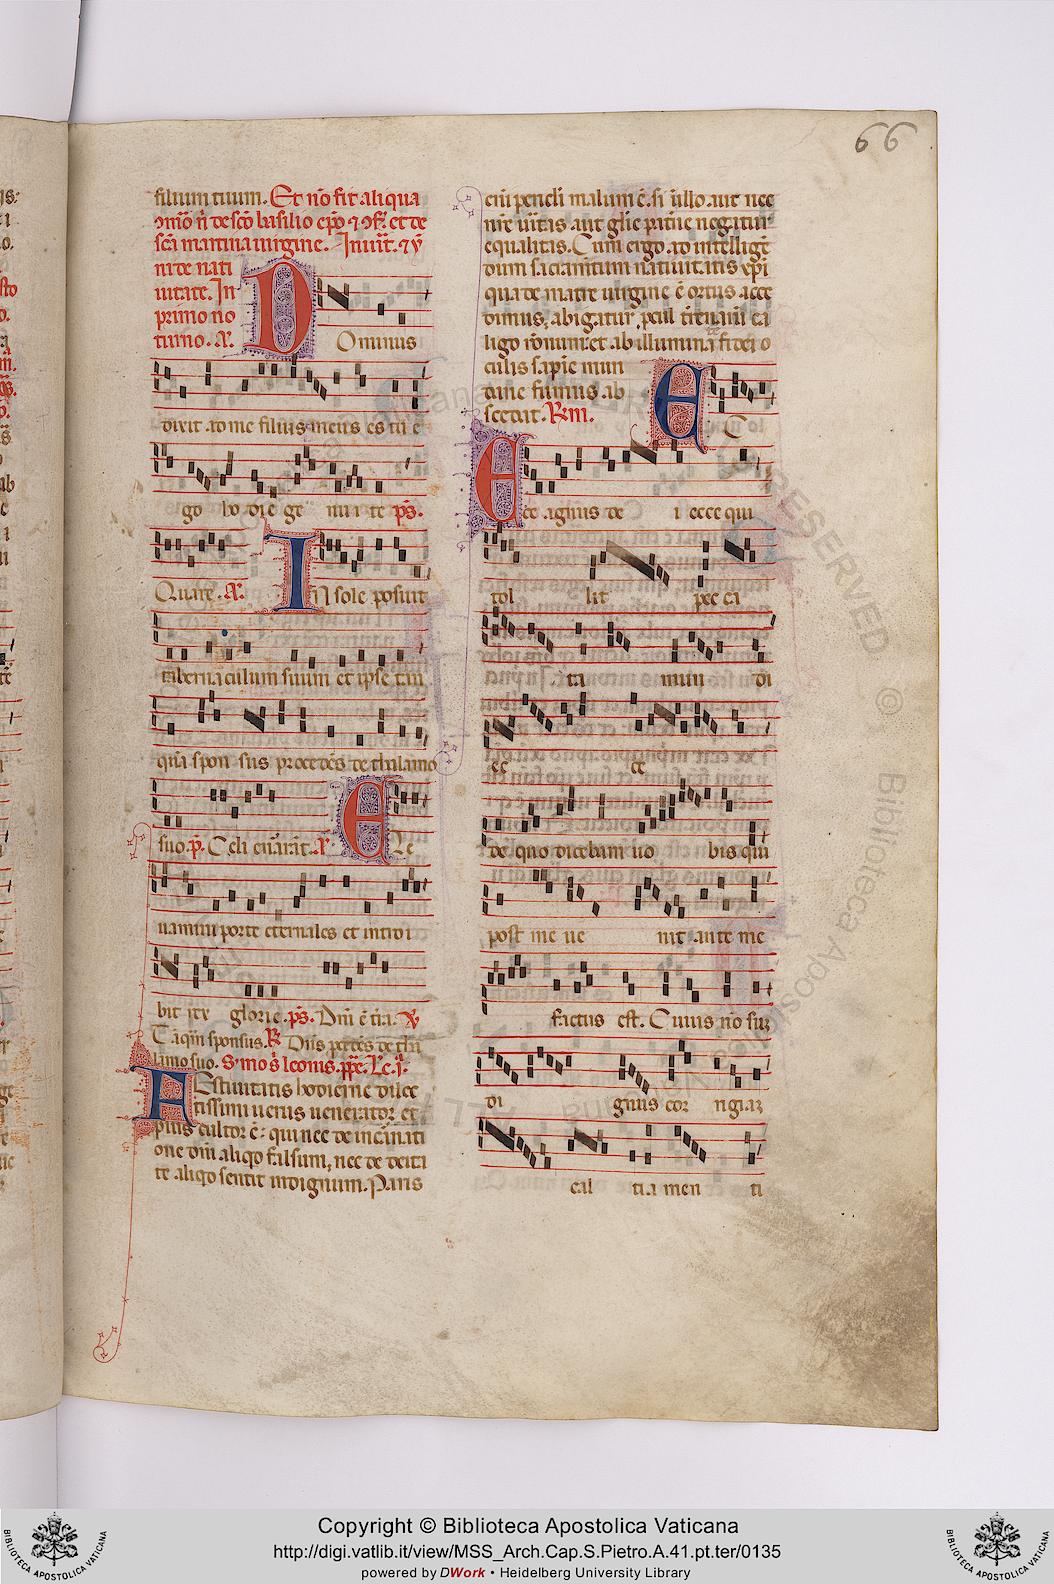 66
filium tuum. Et nō fit aliqua
ɔmō n̄ de scō basilio ep̄o ⁊ ɔf. et de
sc̄a martina uirgine. Inuit. ⁊ ꝟ
ni de nati
uitate. In
primo no
turno. A.
Dominus
dixit ad me filius meus es tu e
go ho die ge nui te ps.
Quare. A. In sole posuit
tabernaculum suum et ipse tan
quā spon sus procedēs de thalamo
suo. p. Celi enarāt. A. Ele
uamini porte eternales et introi
bit rex glorie. ps. Dn̄i ē tr̄a. ꝟ
Tāqm̄ sponsus. R. Dn̄s p̄cedēs de tha
lamo suo. S'mo s̄ leonis. pp̄e. Lc. j.
Festiuitatis hodierne dilec
tissimi uerus uenerator et
pius cultor ē: qui nec de incarnati
one dn̄i aliqd falsum, nec de deita
te aliqd sentit indignum. Paris
eni periculi malum ē. si illo aut nec
nr̄e ueritas aut glīe patr̄ie negatur
equalitas. Cum ergo ad intelligē
dum sacramentum natiuitatis xp̄i
qua de matre uirgine ē ortus acce
dimus, abigatur procul terrenarū ca
ligo rōnum: et ab illuminata fidei o
culis sapīe mun
dane fumus ab
scedat. Rm.
Ecce agnus de i ecce qui
tol lit pec ca
ta mun di
ec ce
de quo dicebam uo bis qui
post me ue nit ante me
factus est. Cuius nō sum
di gnus cor rigiam
cal tia men ti
Copyright © Biblioteca Apostolica Vaticana
http://digi.vatlib.it/view/MSS_Arch.Cap.S.Pietro.A.41.pt.ter/0135
powered by DWork • Heidelberg University Library
BIBLIOTECA APOSTOLICA VATICANA
BIBLIOTECA APOSTOLICA VATICANA